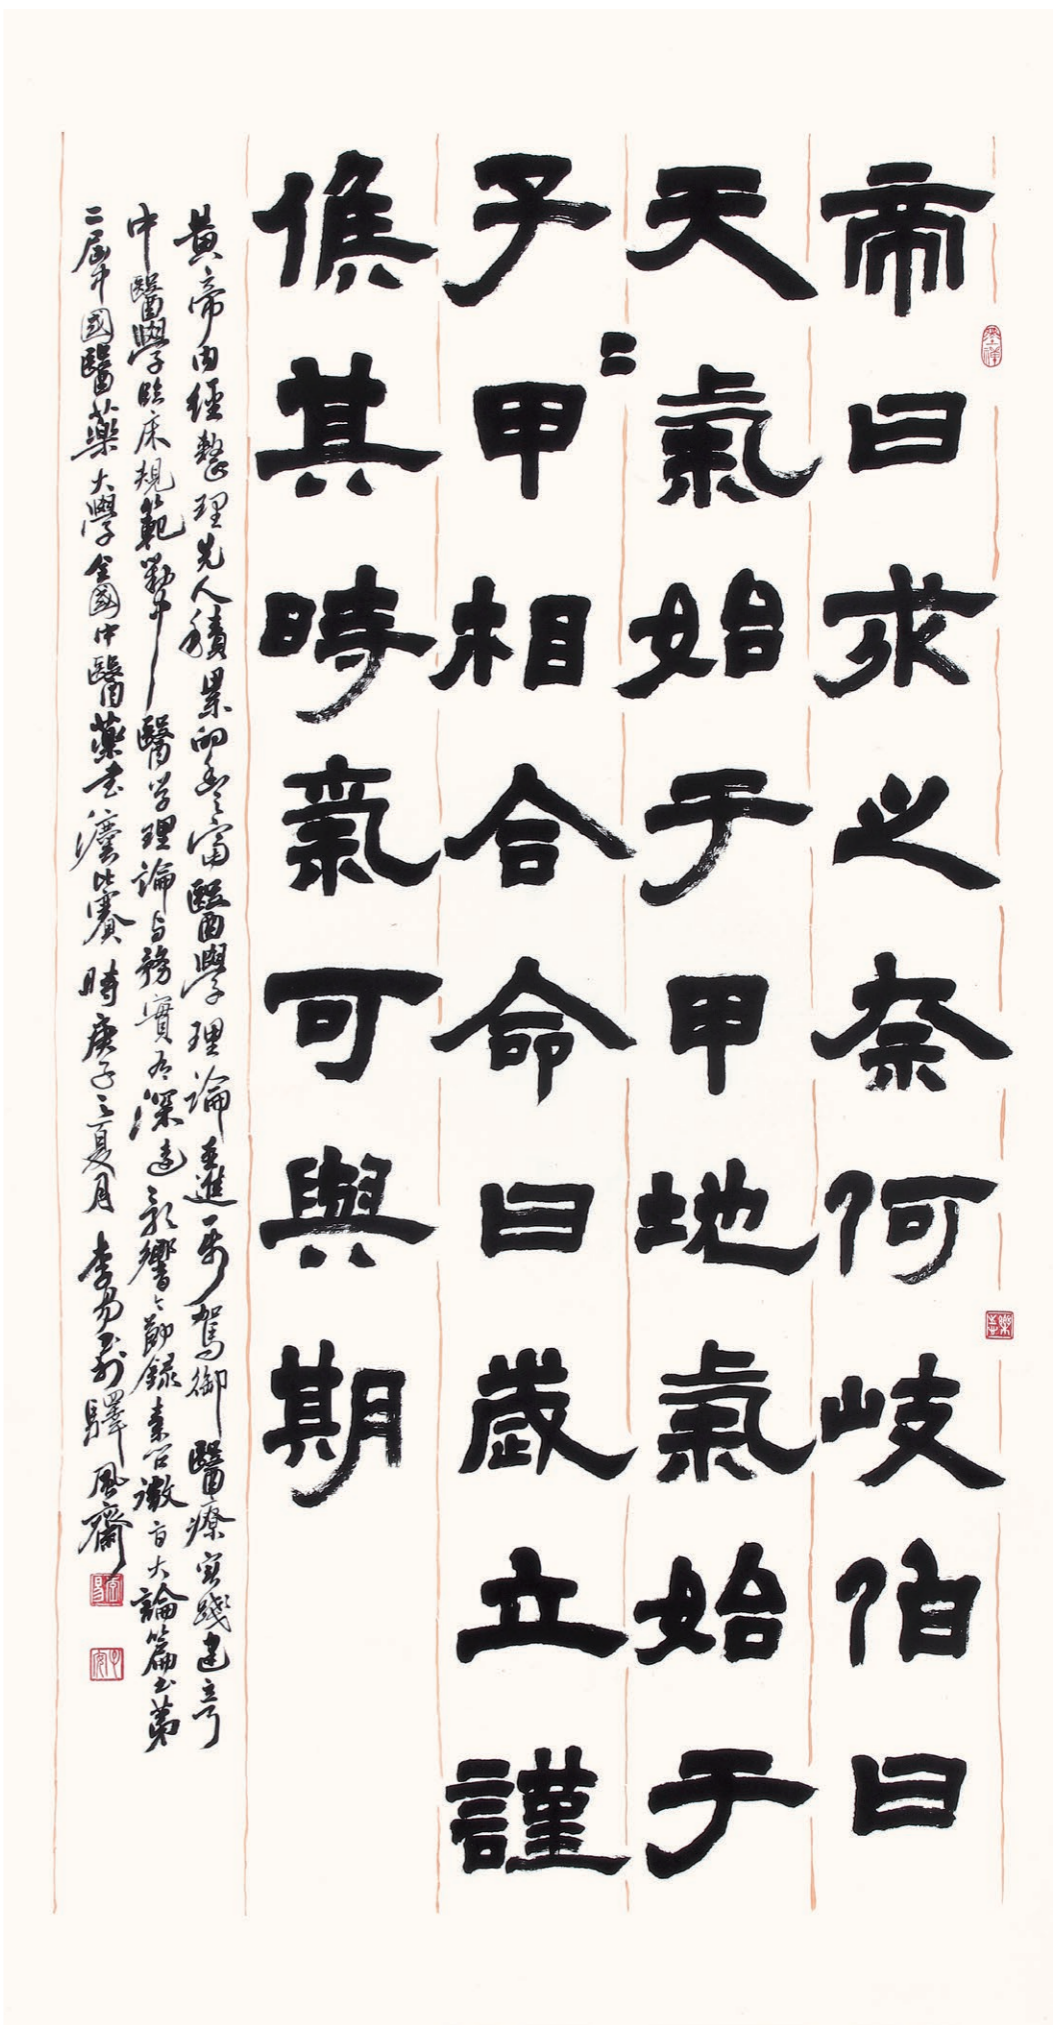 帝曰求之奈何岐伯曰
天氣始于甲地氣始于
子〻甲相合命曰歲立謹
候其時氣可與期
黃帝内經整理先人積累的豐富醫學理論並進而駕御醫療實踐建立
中醫學臨床規範對中醫学理論与務實有深遠影響節録素问微旨大論篇書第
二届中國醫藥大學全國中醫藥書法比賽時庚子之夏月李易於驛風齋